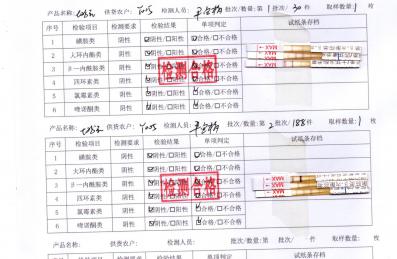 产品名称: 供货农户: Y005 检测人员: 批次/数量:第 1 批次/ 30 件 取样数量: 1 枚
序号 检验项目 检测要求 检验结果 单项判定 试纸条存档
1 磺胺类 阴性 ☑阴性/□阳性 ☑合格/□不合格
2 大环内酯类 阴性 ☑阴性/□阳性 ☑合格/□不合格
3 β-内酰胺类 阴性 ☑阴性/□阳性 ☑合格/□不合格
4 四环素类 阴性 ☑阴性/□阳性 ☑合格/□不合格
5 氯霉素类 阴性 ☑阴性/□阳性 ☑合格/□不合格
6 喹诺酮类 阴性 ☑阴性/□阳性 ☑合格/□不合格
检测合格
MAX
产品名称: 供货农户: Y005 检测人员: 批次/数量:第 2 批次/ 188 件 取样数量: 1 枚
序号 检验项目 检测要求 检验结果 单项判定 试纸条存档
1 磺胺类 阴性 ☑阴性/□阳性 ☑合格/□不合格
2 大环内酯类 阴性 ☑阴性/□阳性 ☑合格/□不合格
3 β-内酰胺类 阴性 ☑阴性/□阳性 ☑合格/□不合格
4 四环素类 阴性 ☑阴性/□阳性 ☑合格/□不合格
5 氯霉素类 阴性 ☑阴性/□阳性 ☑合格/□不合格
6 喹诺酮类 阴性 ☑阴性/□阳性 ☑合格/□不合格
检测合格
MAX
产品名称: 供货农户: 检测人员: 批次/数量:第 批次/ 件 取样数量: 枚
序号 检验项目 检测要求 检验结果 单项判定 试纸条存档